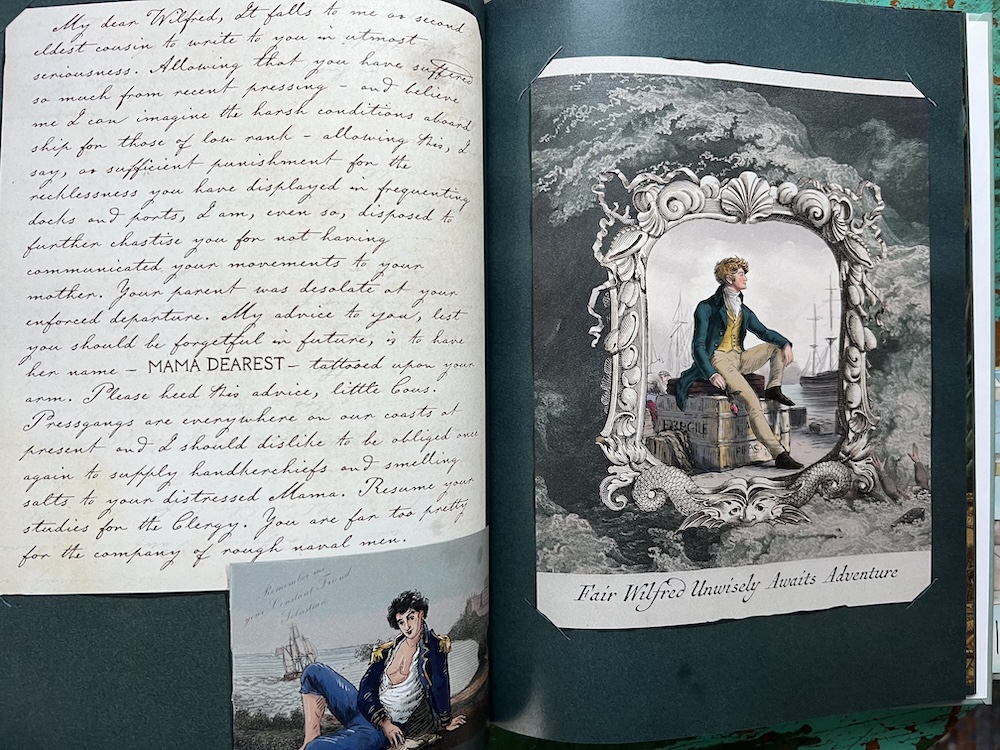 My dear Wilfred, It falls to me as second
eldest cousin to write to you in utmost
seriousness. Allowing that you have suffered
so much from recent pressing – and believe
me I can imagine the harsh conditions aboard
ship for those of low rank – allowing this, I
say, as sufficient punishment for the
recklessness you have displayed in frequenting
docks and ports, I am, even so, disposed to
further chastise you for not having
communicated your movements to your
mother. Your parent was desolate at your
enforced departure. My advice to you, lest
you should be forgetful in future, is to have
her name – MAMA DEAREST – tattooed upon your
arm. Please heed this advice, little Cous.
Pressgangs are everywhere on our coasts at
present – and I should dislike to be obliged once
again to supply handkerchiefs and smelling
salts to your distressed Mama. Resume your
studies for the Clergy. You are far too pretty
for the company of rough naval men.
Remember me
your Constant Friend
Sebastian
FRAGILE
Fair Wilfred Unwisely Awaits Adventure